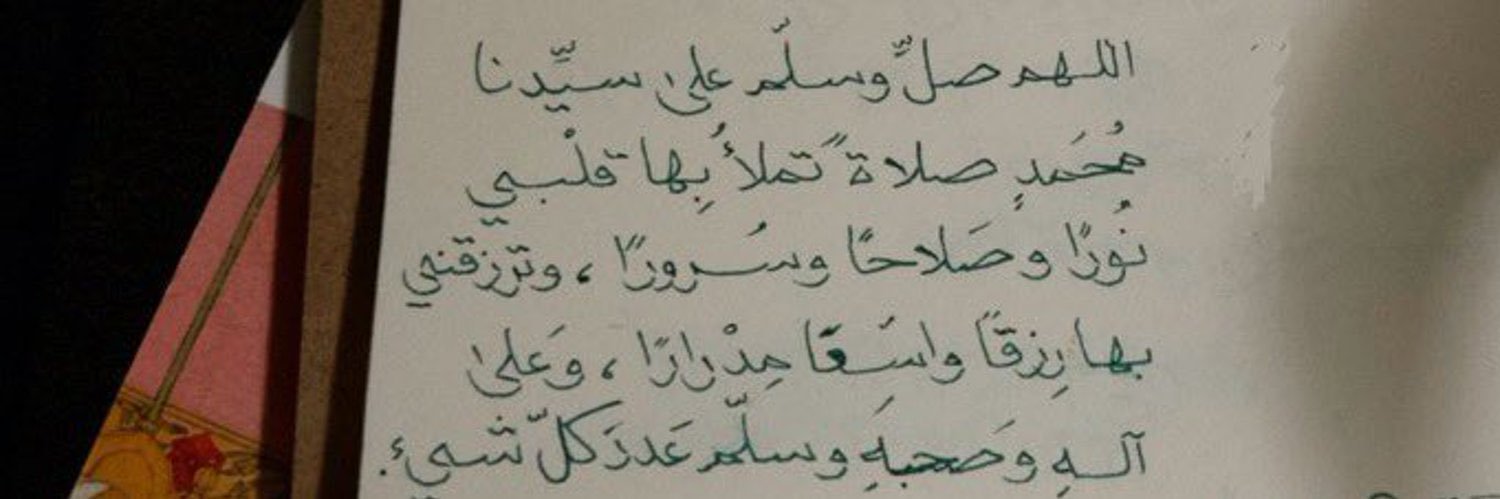 اللهم صلِّ وسلّم على سيِّدنا
مُحَمدٍ صلاةً تملأُ بِها قلْبي
نُورًا وصَلاحًا وسُرورًا ، وترزقني
بها رِزقًا واسَعًا مِدْرارًا ، وَعلى
آلهِ وَصَحبهِ وسلّم عَددَ كلّ شيء.